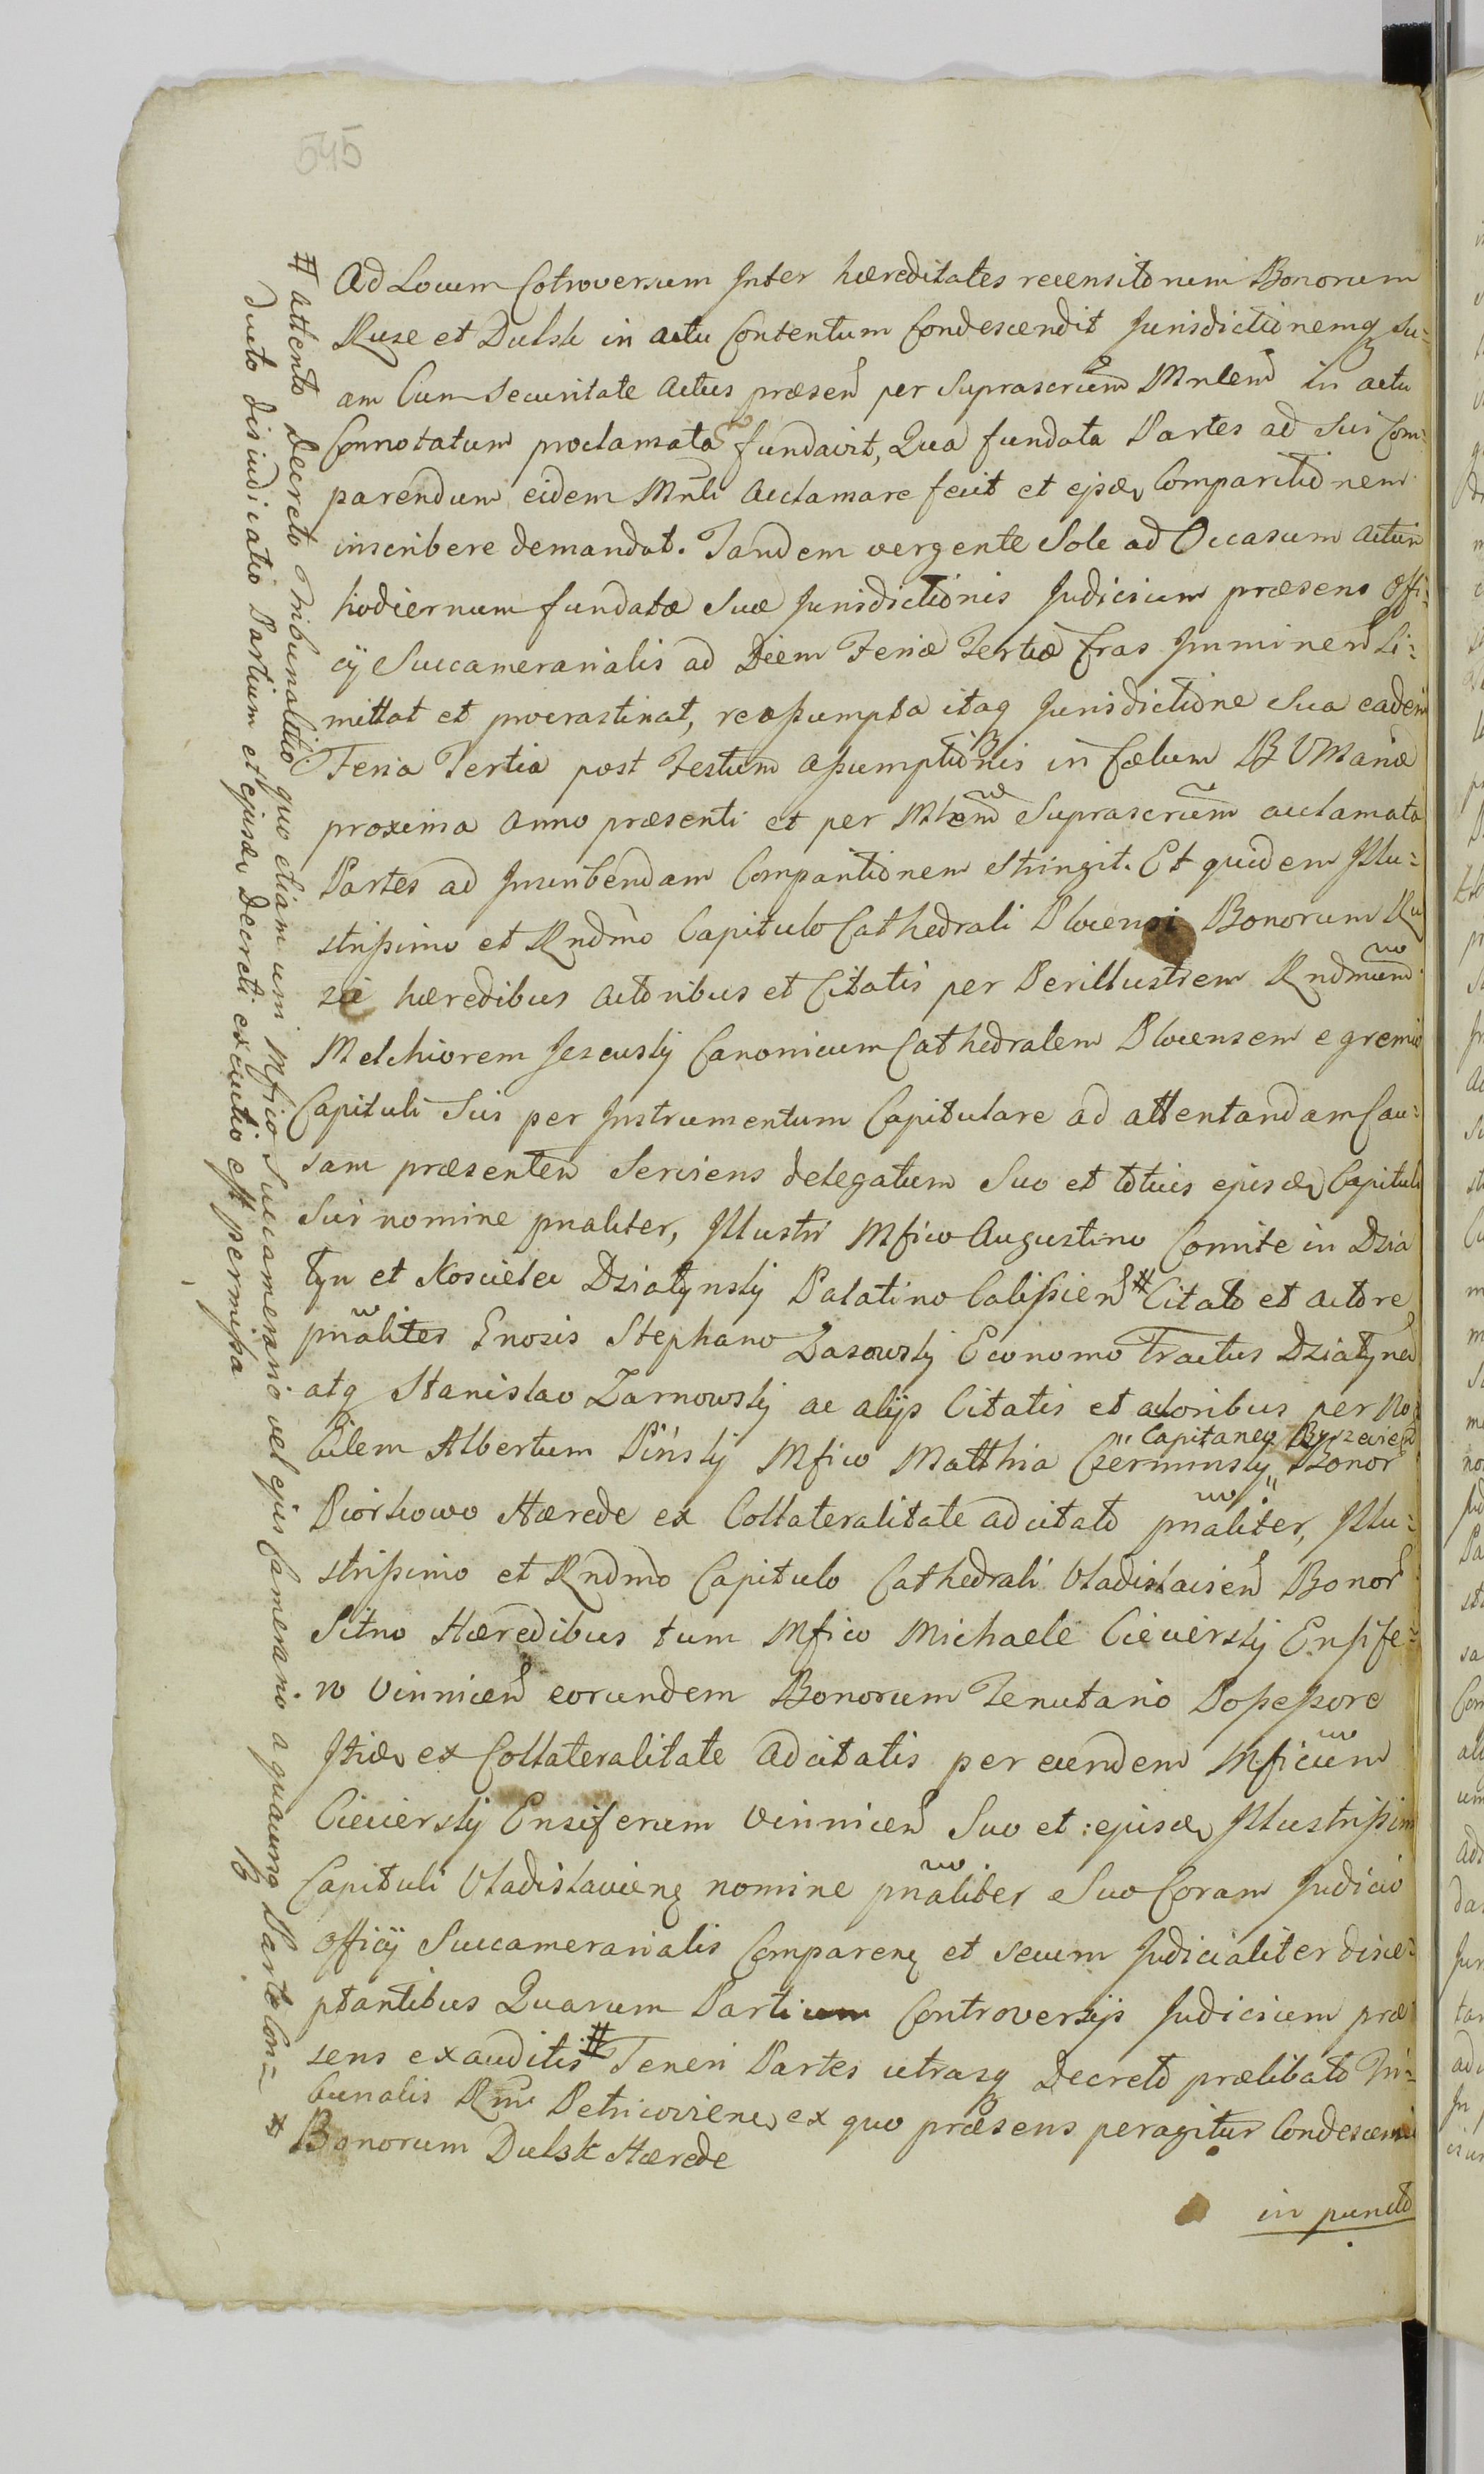 545
Ad Locum Cotroversum Inter hæreditates recensitorum Bonorum
Ruze et Dulsk in actu Contentum Condescendit Jurisdictionemq Su-
am Cum Securitate Actus præsen per Suprascrium Mnlem in actu
Connotatum proclamata fundavit, Qua fundata Partes ad Sui Com-
parendum eidem Mnli acclamare fecit et ejsdem Comparitionem
inscribere demandat. Tandem vergente Sole ad Occasum actum
hodiernum fundatæ Suæ Jurisdictionis Judicium præsens Offi-
cij Succamerarialis ad Diem Feriæ Tertiæ Cras Imminen Li-
mittat et procrastinat, reassumpta itaq Jurisdictione Sua eadem
Feria Tertia post Festum Assumptionis in Cælum B V Mariæ
proxima anno præsenti et per Mlem Suprascrium acclamata
Partes ad Inscribendam Comparitionem stringit. Et quidem Illu-
strissimo et Rndmo Capitulo Cathedrali Plocensi Bonorum Ru
zæ hæredibus actoribus et Citatis per Perillustrem Rndmum
Melchiorem Jezeusky Canonicum Cathedralem Plocensem e gremio
Capituli Sui per Instrumentum Capitulare ad attentandam Cau-
sam præsentem Serviens delegatum Suo et totius ejusdem Capituli
Sui nomine pnaliter, Illustri Mfico Augustino Comite in Dzia
łyn et Koscielec Działynsky Palatino Calissien # Citato et actore
pnaliter Gnosis Stephano Zasowsky Economo Tractus Działynen
atq Stanislao Zarnowsky ac alijs Citatis et actoribus per No-
bilem Albertum Pińsky Mfico Matthia Czerminsky " Capitaneo Byszevien " Bonor
Piorkowo Hærede ex Collateralitate adcitato pnaliter, Illu-
strissimo et Rndmo Capitulo Cathedrali Vladislavien Bonor
Sitno Hæredibus tum Mfico Michaele Cieciersky Ensife-
ro Vinnicen eorundem Bonorum Tenutario Possessore
Itidem ex Collateralitate adcitatis per eundem Mficum
Cieciersky Ensiferum Vinnicen Suo et ejusdem Illustrissimi
Capituli Vladislavieng nomine pnaliter Suo Coram Judicio
officij Succamerarialis Compareng et secum Judicialiter disce-
ptantibus Quarum Partium Controversijs Judicium præ
sens exauditis # Teneri Partes utrasq Decreto prælibato Tri-
bunalis Rni Petricovien ex quo præsens peragitur Condescensi
# Bonorum Dulsk Hærede
in puncto
# attento Decreto Tribunalitio quo etiam uni Mfico Succamerario vel ejus Camerario a quacunq Parte Con-
ducto disiudicatio Partium et ejusdem Decreti executio est permissa